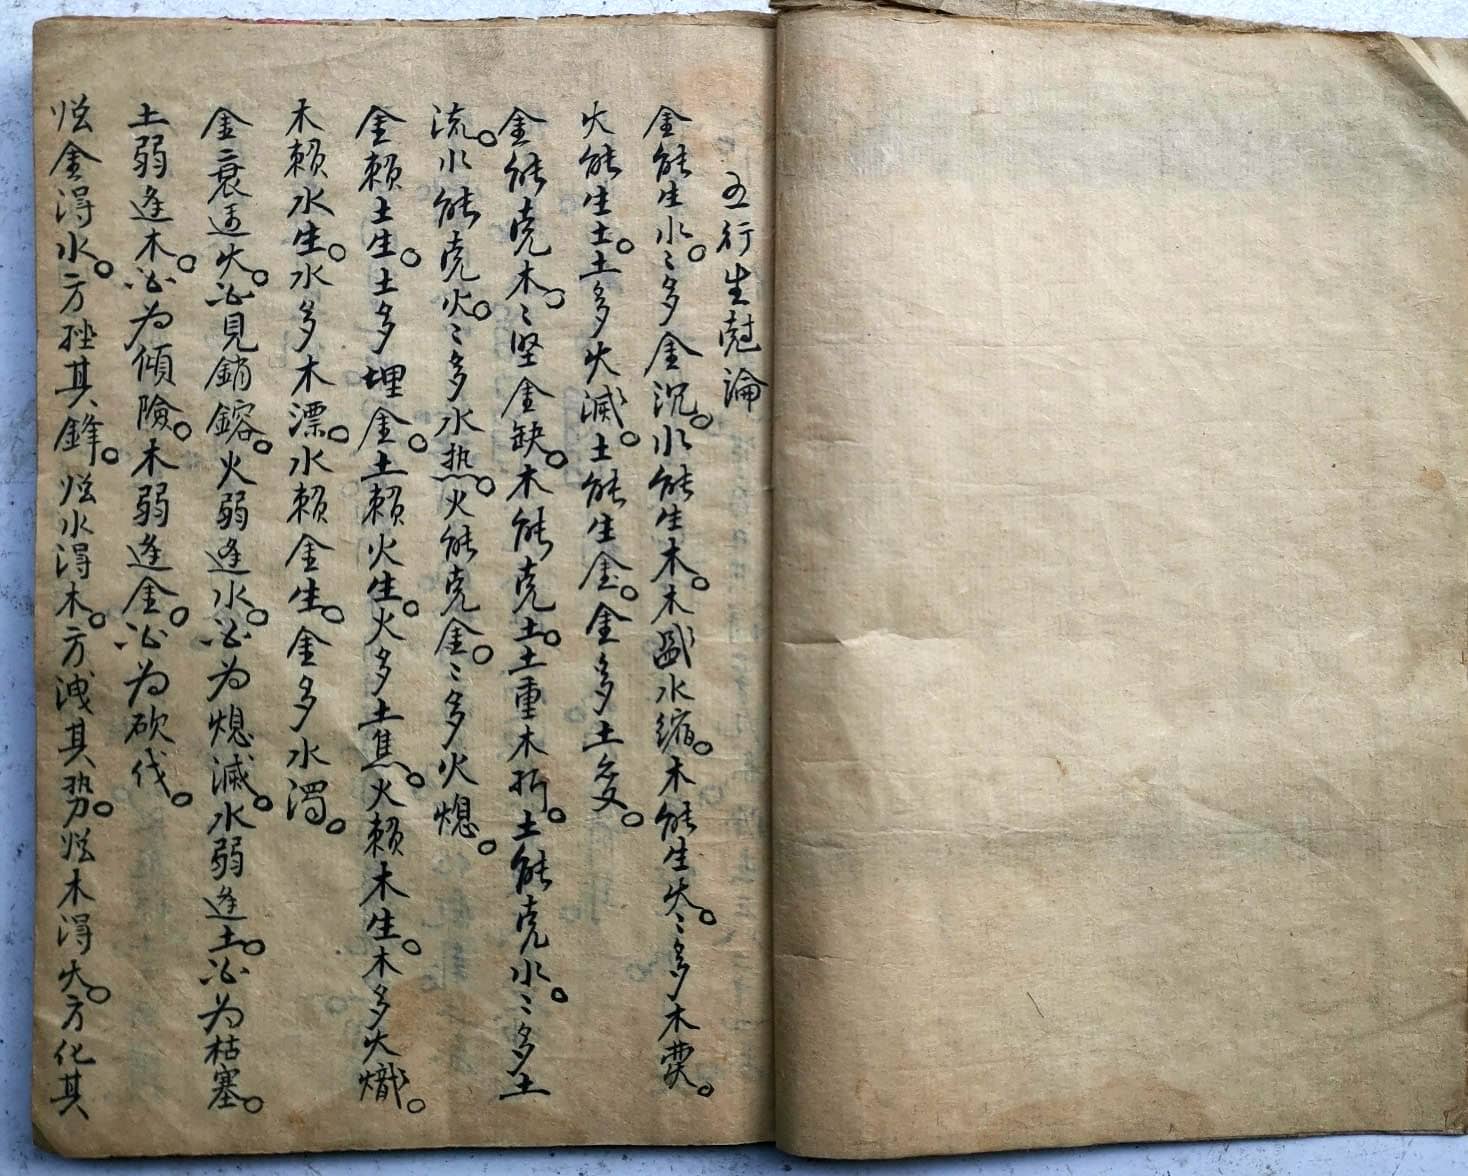 五行生尅論
金能生水。〻多金沉。水能生木。木盛水缩。木能生火。〻多木焚。
火能生土。土多火滅。土能生金。金多土変。
金能克木。〻坚金缺。木能克土。土重木折。土能克水。〻多土
流。水能克火。〻多水热。火能克金。〻多火熄。
金賴土生。土多埋金。土賴火生。火多土焦。火賴木生。木多火熾。
木賴水生。水多木漂。水賴金生。金多水濁。
金衰遇火。必見銷鎔。火弱逢水。必为熄滅。水弱逢土。必为枯塞。
土弱逢木。必为傾險。木弱逢金。必为砍伐。
金得水。方挫其鋒。水得木。方洩其势。木得火。方化其